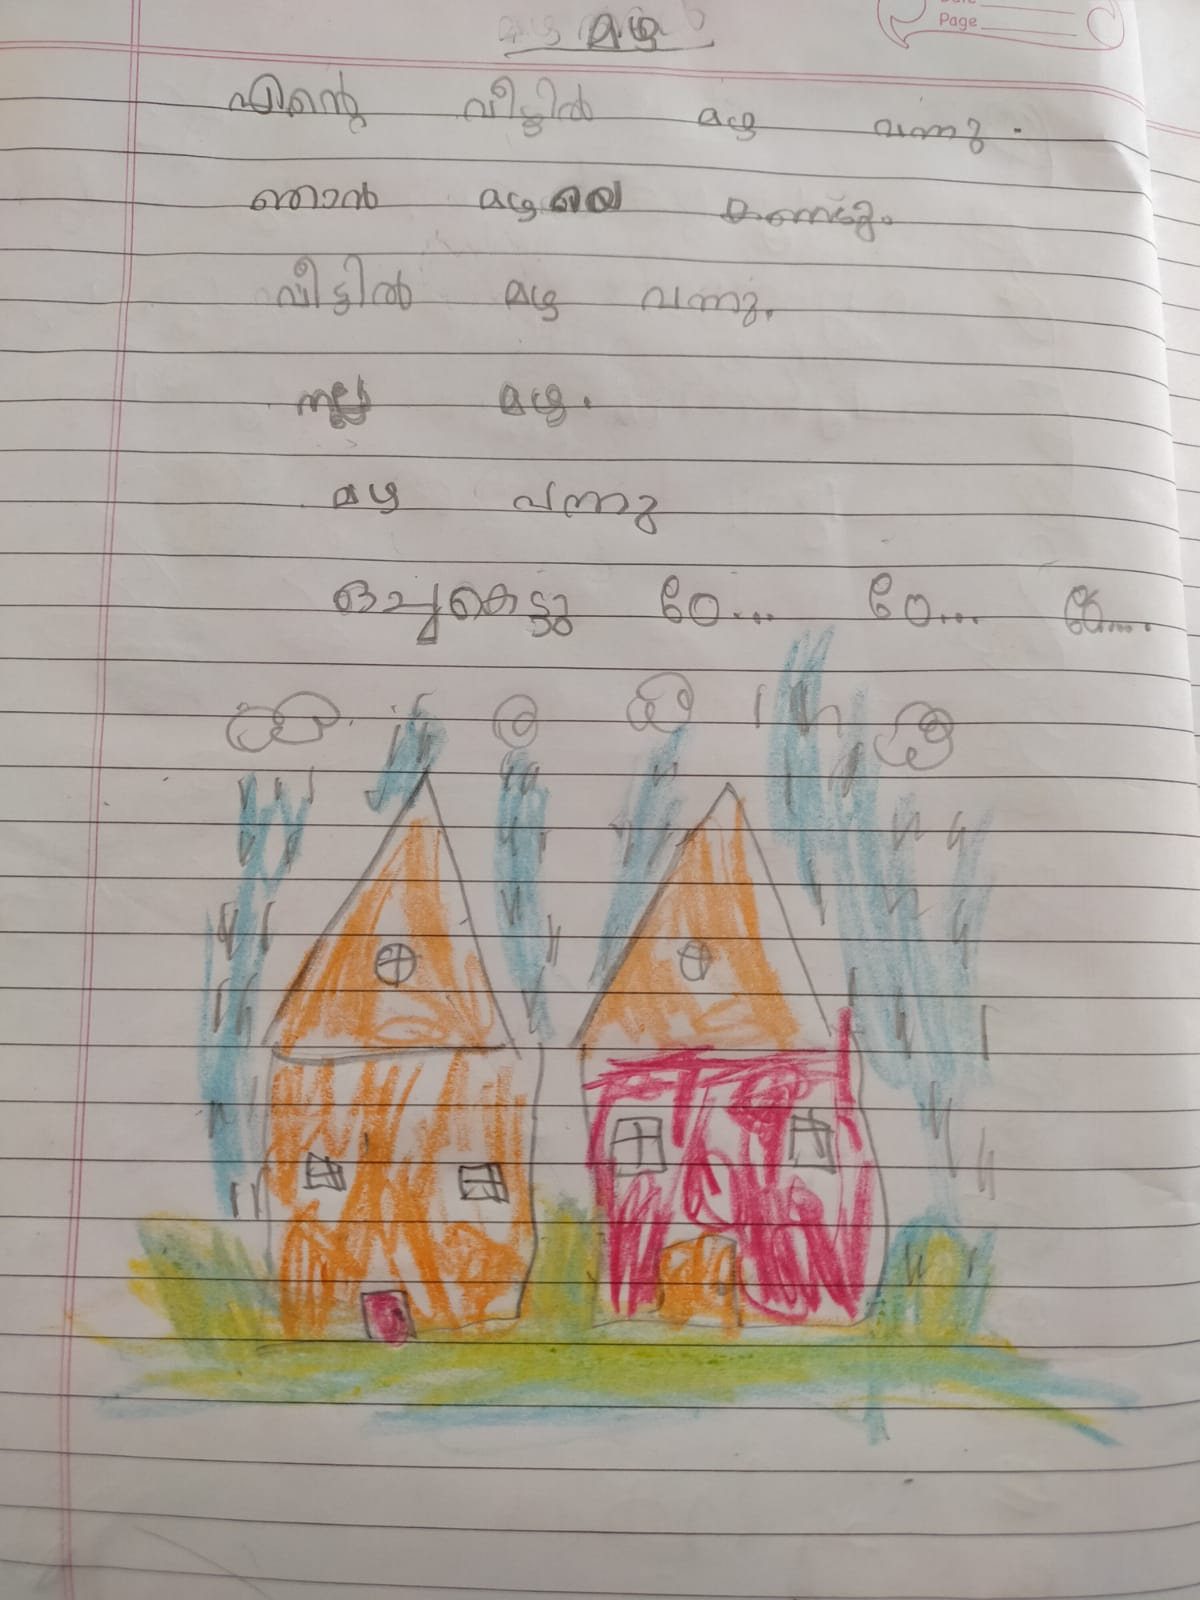 Page
മഴ
എന്റെ വീട്ടിൽ മഴ വന്നു.
ഞാൻ മഴയെ കണ്ടു.
വീട്ടിൽ മഴ വന്നു.
നല്ല മഴ.
മഴ വന്നു
ഒച്ചകെട്ടു ഠേ... ഠേ... ഠേ....